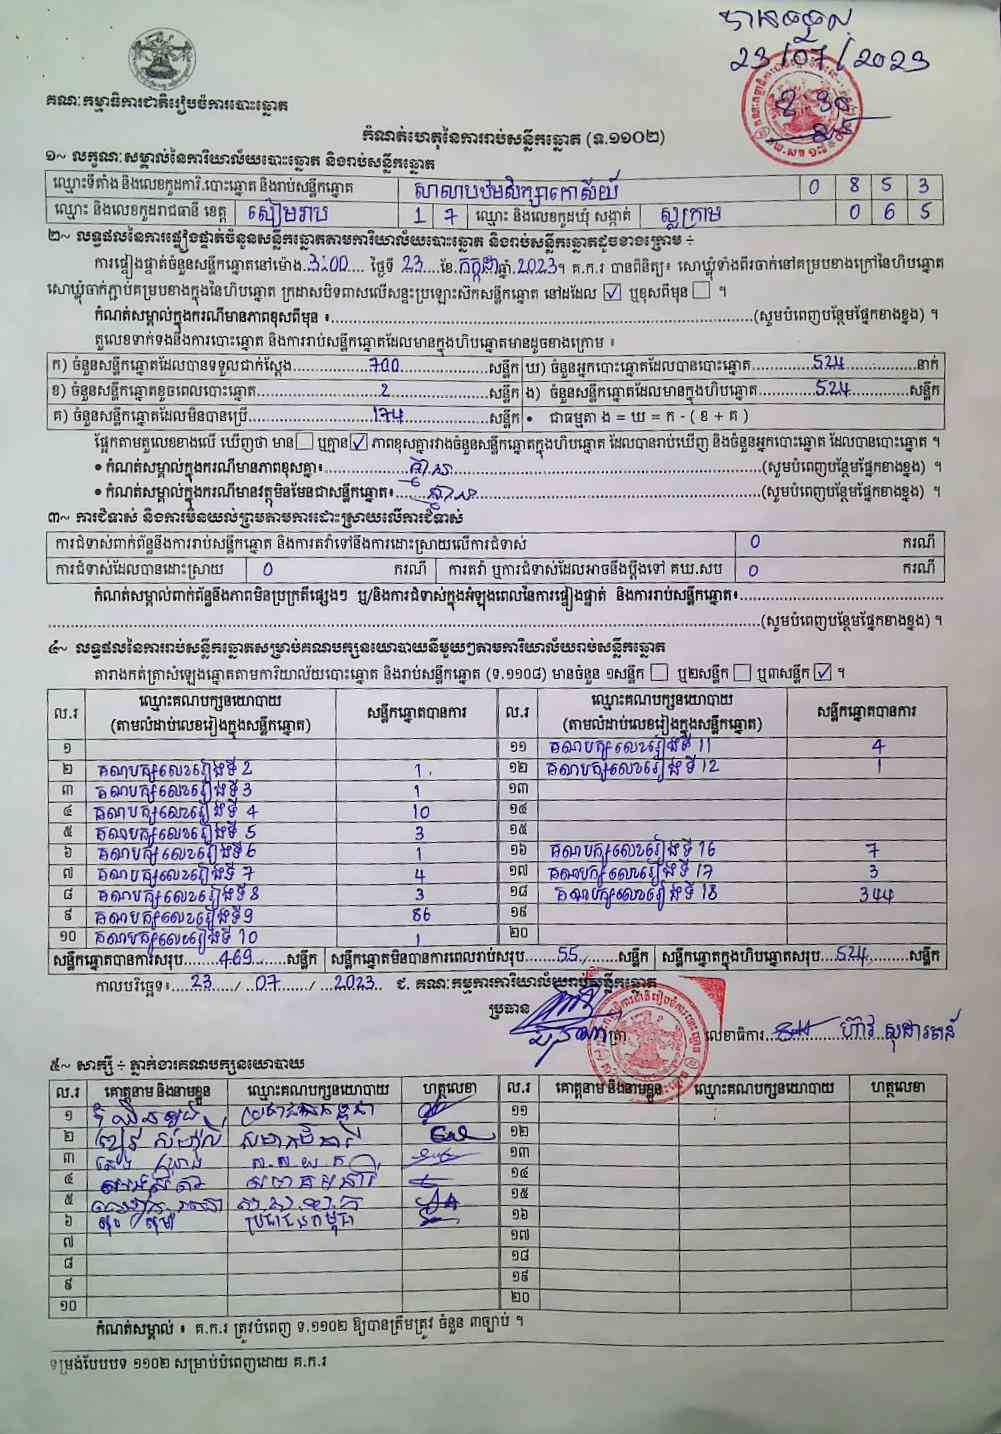 បានទទួល
23/07/2023
គណៈកម្មាធិការជាតិរៀបចំការបោះឆ្នោត
កំណត់ហេតុនៃការរាប់សន្លឹកឆ្នោត (ទ.១១០២)
១~ លក្ខណៈសម្គាល់នៃការិយាល័យបោះឆ្នោត និងរាប់សន្លឹកឆ្នោត
ឈ្មោះទីតាំង និងលេខកូដការិ.បោះឆ្នោត និងរាប់សន្លឹកឆ្នោត សាលាបឋមសិក្សាកោស៊យ៍ 0 8 5 3
ឈ្មោះ និងលេខកូដរាជធានី ខេត្ត សៀមរាប 1 7 ឈ្មោះ និងលេខកូដឃុំ សង្កាត់ ស្លក្រាម 0 6 5
២~ លទ្ធផលនៃការផ្ទៀងផ្ទាត់ចំនួនសន្លឹកឆ្នោតតាមការិយាល័យបោះឆ្នោត និងរាប់សន្លឹកឆ្នោតដូចខាងក្រោម ÷
ការផ្ទៀងផ្ទាត់ចំនួនសន្លឹកឆ្នោតនៅម៉ោង 3:00 ថ្ងៃទី 23 ខែ កក្កដា ឆ្នាំ 2023។ គ.ក.រ បានពិនិត្យ៖ សោឃ្លុំទាំងពីរចាក់នៅគម្របខាងក្រៅនៃហិបឆ្នោត
សោឃ្លុំចាក់ភ្ជាប់គម្របខាងក្នុងនៃហិបឆ្នោត ក្រដាសបិទពាសលើសន្ទះប្រឡោះស៊កសន្លឹកឆ្នោត នៅដដែល ☑ ឬខុសពីមុន ☐ ។
កំណត់សម្គាល់ក្នុងករណីមានភាពខុសពីមុន ៖ (សូមបំពេញបន្ថែមផ្នែកខាងខ្នង) ។
តួលេខទាក់ទងនឹងការបោះឆ្នោត និងការរាប់សន្លឹកឆ្នោតដែលមានក្នុងហិបឆ្នោតមានដូចខាងក្រោម ៖
ក) ចំនួនសន្លឹកឆ្នោតដែលបានទទួលជាក់ស្តែង 700 សន្លឹក ឃ) ចំនួនអ្នកបោះឆ្នោតដែលបានបោះឆ្នោត 524 នាក់
ខ) ចំនួនសន្លឹកឆ្នោតខូចពេលបោះឆ្នោត 2 សន្លឹក ង) ចំនួនសន្លឹកឆ្នោតដែលមានក្នុងហិបឆ្នោត 524 សន្លឹក
គ) ចំនួនសន្លឹកឆ្នោតដែលមិនបានប្រើ 174 សន្លឹក • ជាធម្មតា ង = ឃ = ក - ( ខ + គ )
ផ្អែកតាមតួលេខខាងលើ ឃើញថា មាន ☐ ឬគ្មាន ☑ ភាពខុសគ្នារវាងចំនួនសន្លឹកឆ្នោតក្នុងហិបឆ្នោត ដែលបានរាប់ឃើញ និងចំនួនអ្នកបោះឆ្នោត ដែលបានបោះឆ្នោត ។
• កំណត់សម្គាល់ក្នុងករណីមានភាពខុសគ្នា៖ គ្មាន (សូមបំពេញបន្ថែមផ្នែកខាងខ្នង) ។
• កំណត់សម្គាល់ក្នុងករណីមានវត្ថុមិនមែនជាសន្លឹកឆ្នោត៖ គ្មាន (សូមបំពេញបន្ថែមផ្នែកខាងខ្នង) ។
៣~ ការជំទាស់ និងការមិនយល់ព្រមតាមការដោះស្រាយលើការជំទាស់
ការជំទាស់ពាក់ព័ន្ធនឹងការរាប់សន្លឹកឆ្នោត និងការតវ៉ាទៅនឹងការដោះស្រាយលើការជំទាស់ 0 ករណី
ការជំទាស់ដែលបានដោះស្រាយ 0 ករណី ការតវ៉ា ឬការជំទាស់ដែលអាចនឹងប្តឹងទៅ គឃ.សប 0 ករណី
កំណត់សម្គាល់ពាក់ព័ន្ធនឹងភាពមិនប្រក្រតីផ្សេងៗ ឬ/និងការជំទាស់ក្នុងអំឡុងពេលនៃការផ្ទៀងផ្ទាត់ និងការរាប់សន្លឹកឆ្នោត៖
(សូមបំពេញបន្ថែមផ្នែកខាងខ្នង) ។
៤~ លទ្ធផលនៃការរាប់សន្លឹកឆ្នោតសម្រាប់គណបក្សនយោបាយនីមួយៗតាមការិយាល័យរាប់សន្លឹកឆ្នោត
តារាងកត់ត្រាសំឡេងឆ្នោតតាមការិយាល័យបោះឆ្នោត និងរាប់សន្លឹកឆ្នោត (ទ.១១០៨) មានចំនួន ១សន្លឹក ☐ ឬ២សន្លឹក ☐ ឬ៣សន្លឹក ☑ ។
ល.រ ឈ្មោះគណបក្សនយោបាយ (តាមលំដាប់លេខរៀងក្នុងសន្លឹកឆ្នោត) សន្លឹកឆ្នោតបានការ ល.រ ឈ្មោះគណបក្សនយោបាយ (តាមលំដាប់លេខរៀងក្នុងសន្លឹកឆ្នោត) សន្លឹកឆ្នោតបានការ
១ ១១ គណបក្សលេខរៀងទី 11 4
២ គណបក្សលេខរៀងទី 2 1 ១២ គណបក្សលេខរៀងទី 12 1
៣ គណបក្សលេខរៀងទី 3 1 ១៣
៤ គណបក្សលេខរៀងទី 4 10 ១៤
៥ គណបក្សលេខរៀងទី 5 3 ១៥
៦ គណបក្សលេខរៀងទី 6 1 ១៦ គណបក្សលេខរៀងទី 16 7
៧ គណបក្សលេខរៀងទី 7 4 ១៧ គណបក្សលេខរៀងទី 17 3
៨ គណបក្សលេខរៀងទី 8 3 ១៨ គណបក្សលេខរៀងទី 18 344
៩ គណបក្សលេខរៀងទី 9 86 ១៩
១០ គណបក្សលេខរៀងទី 10 1 ២០
សន្លឹកឆ្នោតបានការសរុប 469 សន្លឹក សន្លឹកឆ្នោតមិនបានការពេលរាប់សរុប 55 សន្លឹក សន្លឹកឆ្នោតក្នុងហិបឆ្នោតសរុប 524 សន្លឹក
កាលបរិច្ឆេទ៖ 23 / 07 / 2023 ជ. គណៈកម្មការការិយាល័យរាប់សន្លឹកឆ្នោត
ប្រធាន
លេខាធិការ
៥~ សាក្សី ÷ ភ្នាក់ងារគណបក្សនយោបាយ
ល.រ គោត្តនាម និងនាមខ្លួន ឈ្មោះគណបក្សនយោបាយ ហត្ថលេខា ល.រ គោត្តនាម និងនាមខ្លួន ឈ្មោះគណបក្សនយោបាយ ហត្ថលេខា
១ ១១
២ ១២
៣ ១៣
៤ ១៤
៥ ១៥
៦ ប្រជាជនកម្ពុជា ១៦
៧ ១៧
៨ ១៨
៩ ១៩
១០ ២០
កំណត់សម្គាល់ ៖ គ.ក.រ ត្រូវបំពេញ ទ.១១០២ ឱ្យបានត្រឹមត្រូវ ចំនួន ៣ច្បាប់ ។
ទម្រង់បែបបទ ១១០២ សម្រាប់បំពេញដោយ គ.ក.រ